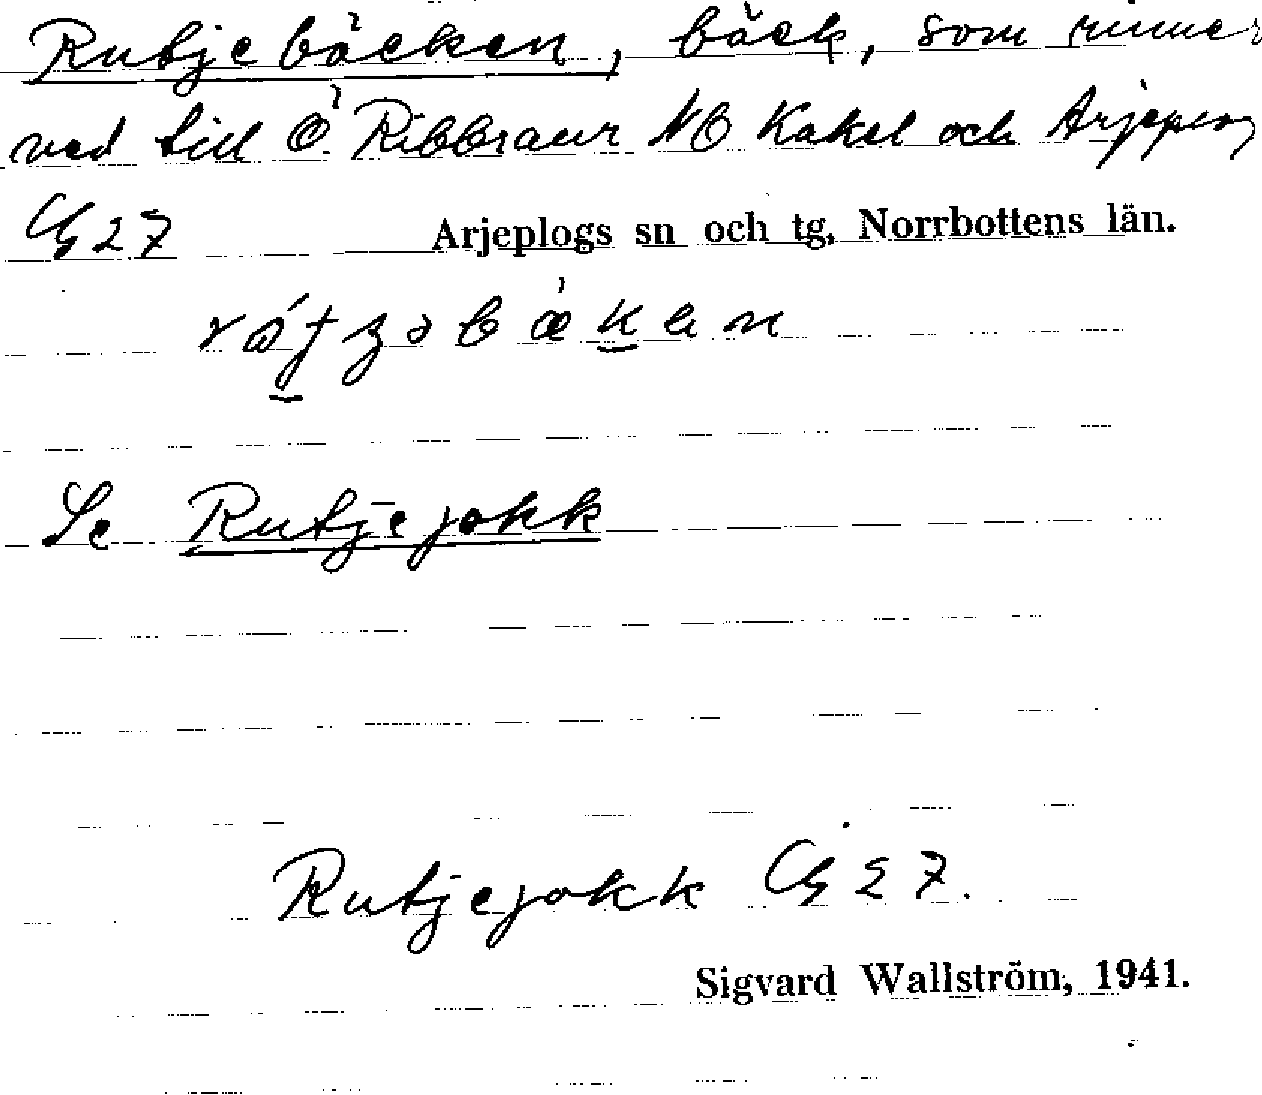 Rutjebäcken, bäck, som rinner
ned till Ö. Ribbraur NO Kakel och Arjeplog
G 27 Arjeplogs sn och tg, Norrbottens län.
Se Rutjejokk
Rutjejokk G 27.
Sigvard Wallström, 1941.